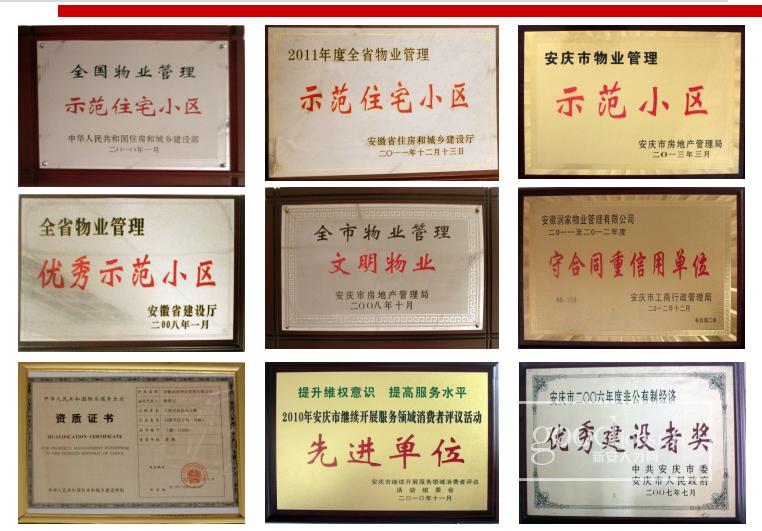 全国物业管理
示范住宅小区
中华人民共和国住房和城乡建设部
二〇一〇年一月
2011年度全省物业管理
示范住宅小区
安徽省住房和城乡建设厅
二〇一一年十二月十三日
安庆市物业管理
示范小区
安庆市房地产管理局
二〇一三年三月
全省物业管理
优秀示范小区
安徽省建设厅
二00八年一月
全市物业管理
文明物业
安庆市房地产管理局
二00八年十月
安徽润家物业管理有限公司
二〇一一至二〇一二年度
守合同重信用单位
NO.159
安庆市工商行政管理局
二〇一二年十二月
有效期二年
中华人民共和国物业服务企业
资质证书
QUALIFICATION CERTIFICATE
FOR PROPERTY MANAGEMENT ENTERPRISE
IN THE PEOPLE'S REPUBLIC OF CHINA
中华人民共和国住房和城乡建设部制
提升维权意识 提高服务水平
2010年安庆市继续开展服务领域消费者评议活动
先进单位
安庆市继续开展服务领域消费者评议
活动组委会
二〇一〇年十一月
安庆市二〇〇六年度非公有制经济
优秀建设者奖
中共安庆市委
安庆市人民政府
二〇〇七年七月
新安人才网